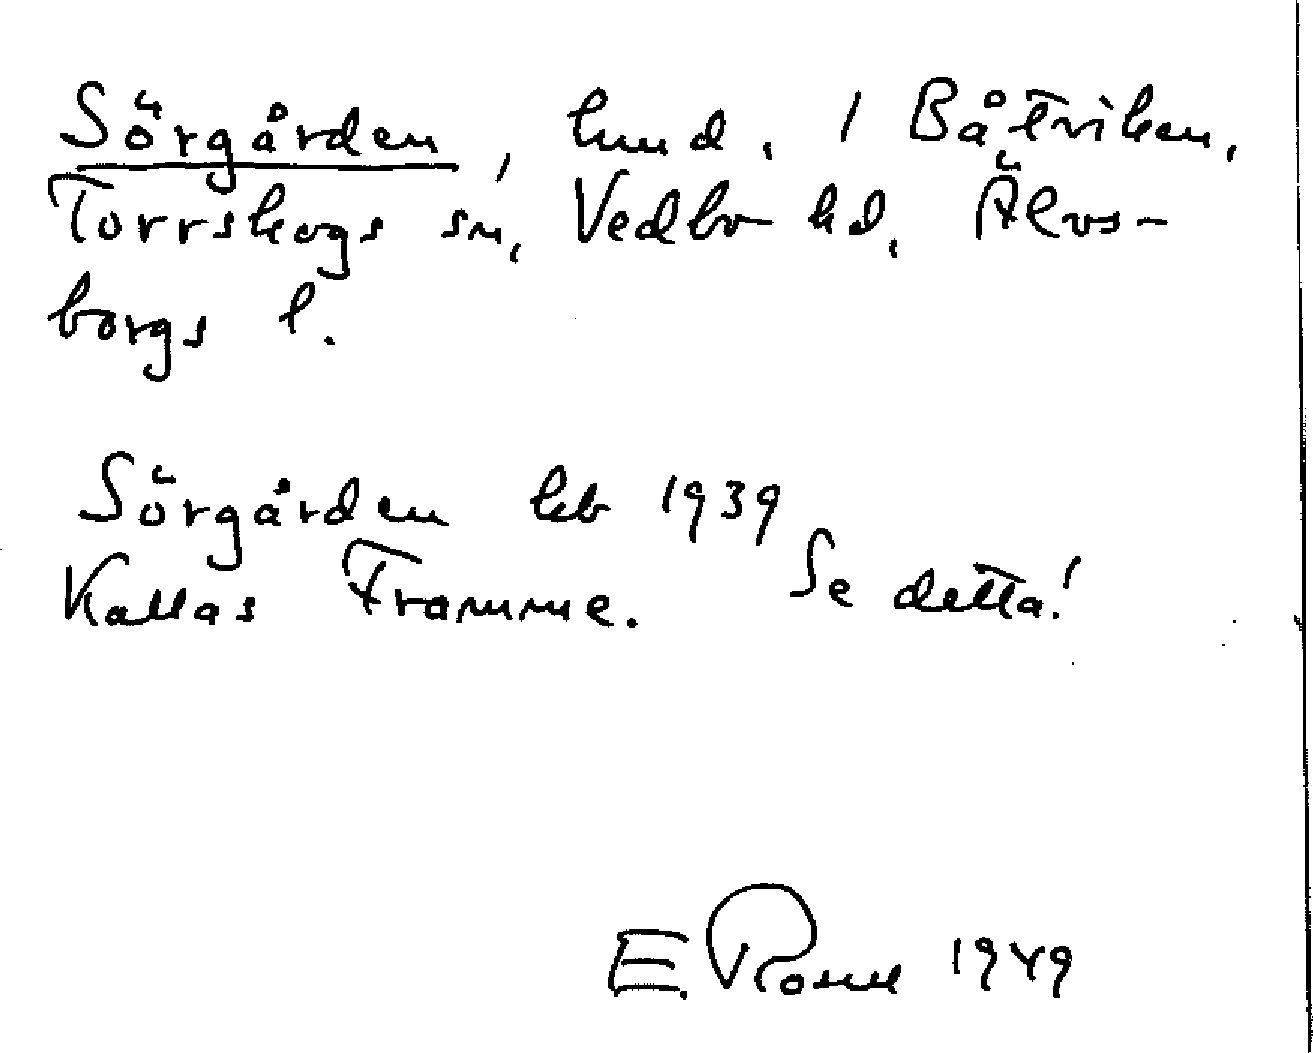 Sörgården, hmd. i Båtviken,
Torrskogs sn, Vedbo hd, Älvs-
borgs l.
Sörgården kb 1939
Kallas Framme. Se detta!
E. Rosell 1949